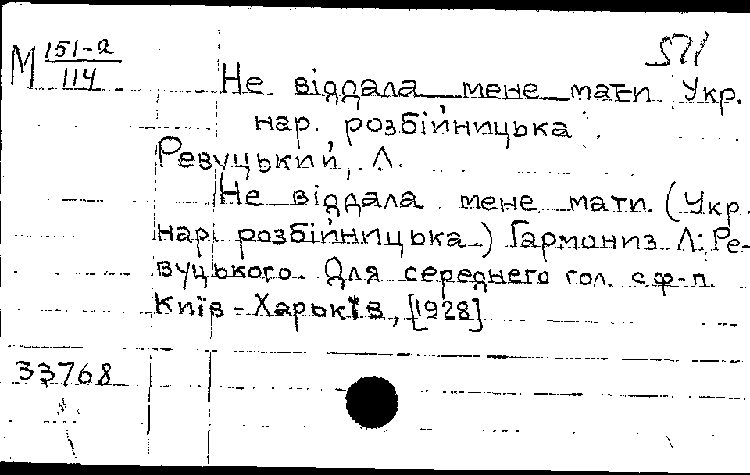 571
М 151-а
114
Не віддала мене мати Укр.
нар. розбійницька
Ревуцький, Л.
Не віддала мене мати. (Укр.
нар. розбійницька) Гармониз Л. Ре-
вуцького. Для середнего гол. с ф-п.
Київ - Харьків, [1928]
33768